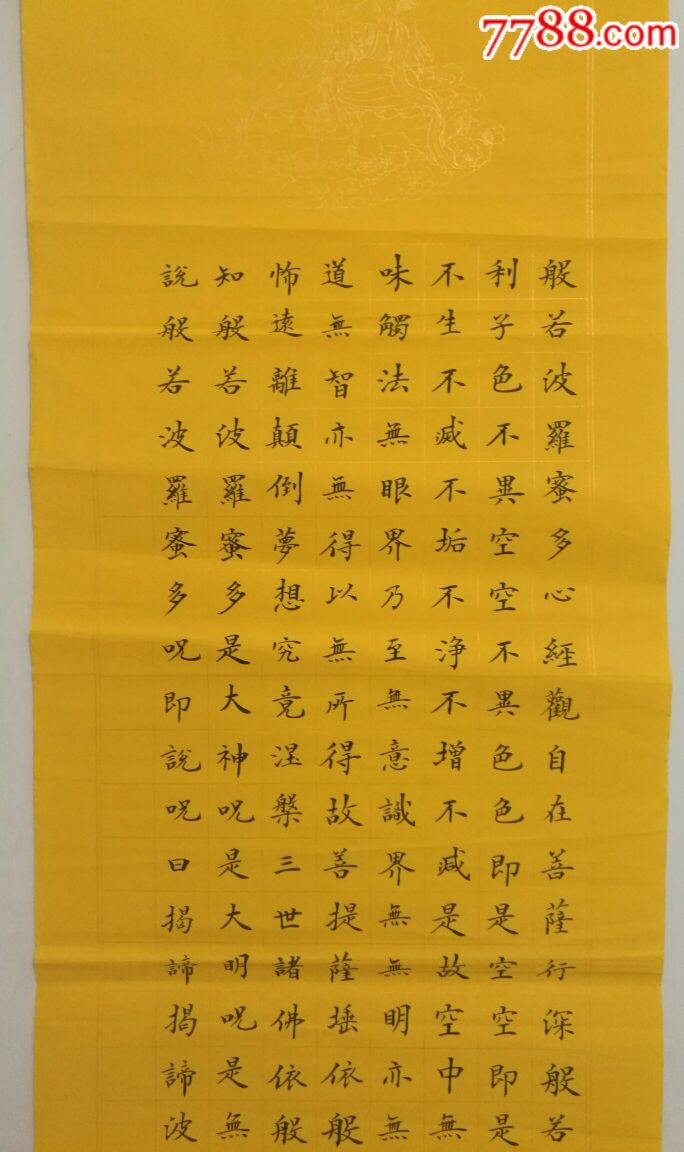 7788.com
般若波羅蜜多心經觀自在菩薩行深般若
利子色不異空空不異色色即是空空即是
不生不滅不垢不淨不增不減是故空中無
味觸法無眼界乃至無意識界無無明亦無
道無智亦無得以無所得故菩提薩埵依般
怖遠離顛倒夢想究竟涅槃三世諸佛依般
知般若波羅蜜多是大神呪是大明呪是無
說般若波羅蜜多呪即說呪曰揭諦揭諦波